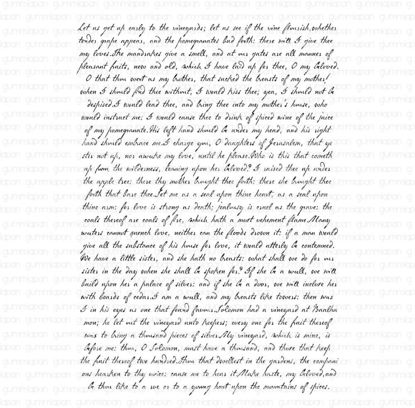 Let us get up early to the vineyards; let us see if the vine flourish, whether
tender grape appear, and the pomegranates bud forth: there will I give thee
my loves. The mandrakes give a smell, and at our gates are all manner of
pleasant fruits, new and old, which I have laid up for thee, O my beloved.
O that thou wert as my brother, that sucked the breasts of my mother!
when I should find thee without, I would kiss thee; yea, I should not be
despised. I would lead thee, and bring thee into my mother's house, who
would instruct me: I would cause thee to drink of spiced wine of the juice
of my pomegranate. His left hand should be under my head, and his right
hand should embrace me. I charge you, O daughters of Jerusalem, that ye
stir not up, nor awake my love, until he please. Who is this that cometh
up from the wilderness, leaning upon her beloved? I raised thee up under
the apple tree: there thy mother brought thee forth: there she brought thee
forth that bare thee. Set me as a seal upon thine heart, as a seal upon
thine arm: for love is strong as death; jealousy is cruel as the grave: the
coals thereof are coals of fire, which hath a most vehement flame. Many
waters cannot quench love, neither can the floods drown it: if a man would
give all the substance of his house for love, it would utterly be contemned.
We have a little sister, and she hath no breasts: what shall we do for our
sister in the day when she shall be spoken for? If she be a wall, we will
build upon her a palace of silver: and if she be a door, we will inclose her
with boards of cedar. I am a wall, and my breasts like towers: then was
I in his eyes as one that found favour. Solomon had a vineyard at Baalha
mon; he let out the vineyard unto keepers; every one for the fruit thereof
was to bring a thousand pieces of silver. My vineyard, which is mine, is
before me: thou, O Solomon, must have a thousand, and those that keep
the fruit thereof two hundred. Thou that dwellest in the gardens, the compani
ons hearken to thy voice: cause me to hear it. Make haste, my beloved, and
be thou like to a roe or to a young hart upon the mountains of spices.